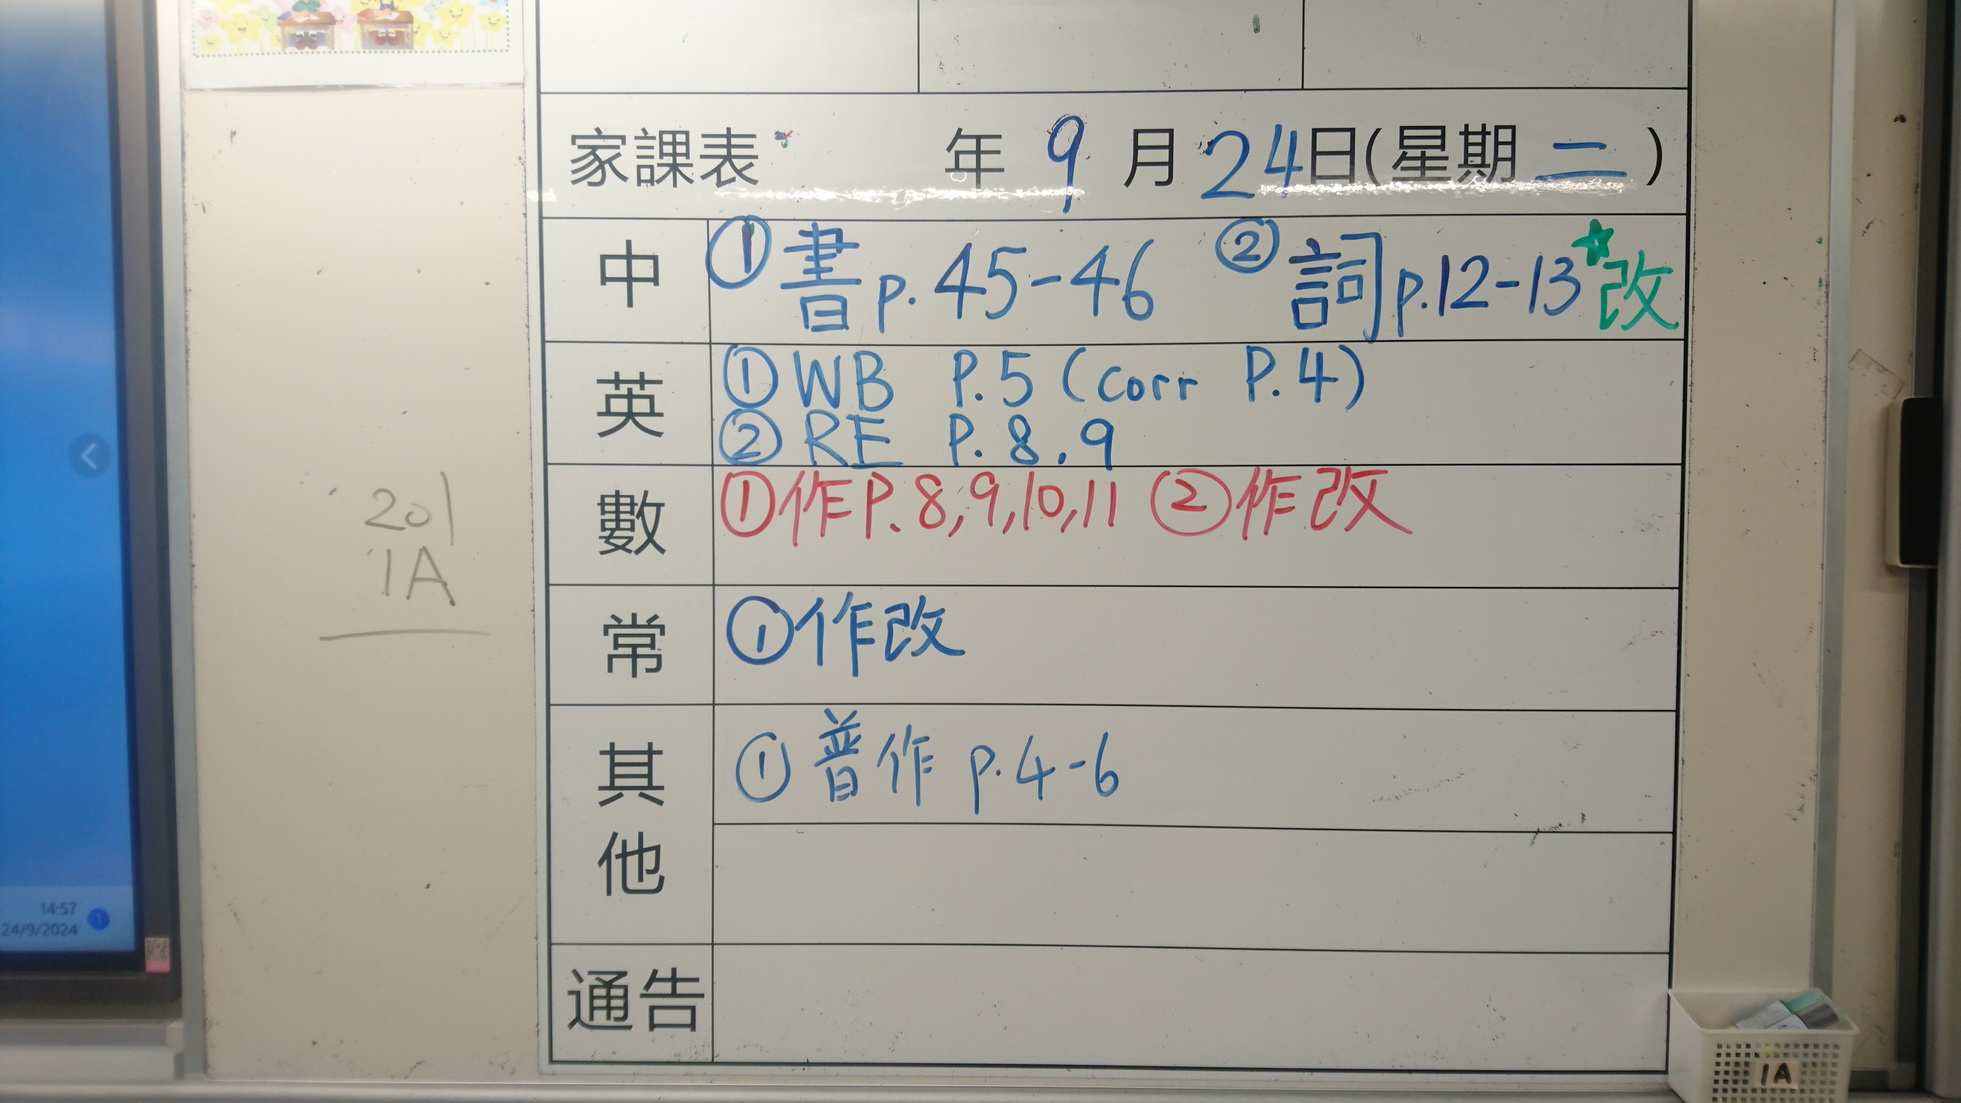 家課表 年 9 月 24 日(星期 二 )
中 ① 書 p. 45-46 ② 詞 p.12-13 ★改
英 ① WB P.5 (corr P.4)
② RE P. 8, 9
數 ① 作 P. 8, 9, 10, 11 ② 作改
常 ① 作改
其他 ① 普作 p. 4-6
通告
201
1A
14:57
24/9/2024
1
1A